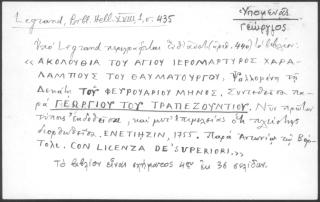 Legrand, Bibl. Hell. XVIII, 1, σ. 435
Ὑπομενᾶς
Γεώργιος
Ὑπὸ Legrand περιγράφεται
« ΑΚΟΛΟΥΘΙΑ ΤΟΥ ΑΓΙΟΥ ΙΕΡΟΜΑΡΤΥΡΟΣ ΧΑΡΑ-
ΛΑΜΠΟΥΣ ΤΟΥ ΘΑΥΜΑΤΟΥΡΓΟΥ, Ψαλλομένη τῇ
Δεκάτῃ ΤΟΥ ΦΕΥΡΟΥΑΡΙΟΥ ΜΗΝΟΣ. Συντεθεῖσα πα-
ρὰ ΓΕΩΡΓΙΟΥ ΤΟΥ ΤΡΑΠΕΖΟΥΝΤΙΟΥ. Νῦν πρῶτον
τύποις ἐκδοθεῖσα, καὶ μετ' ἐπιμελείας ὅτι πλείστης
διορθωθεῖσα. ΕΝΕΤΙΗΣΙΝ, 1755. Παρὰ Ἀντωνίῳ τῷ Βόρ-
τολι. CON LICENZA DE' SUPERIORI. »
Τὸ βιβλίον εἶναι σχήματος 4ου ἐκ 36 σελίδων.